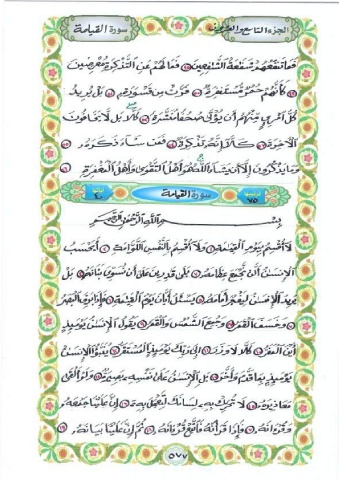 سورة القيامة
الجزء التاسع والعشرون
فما تنفعهم شفعة الشافعين فما لهم عن التذكرة معرضين
كأنهم حمر مستنفرة فرت من قسورة بل يريد
كل امرئ منهم أن يؤتى صحفا منشرة كلا بل لا يخافون
الآخرة كلا إنه تذكرة فمن شاء ذكره
وما يذكرون إلا أن يشاء الله هو أهل التقوى وأهل المغفرة
٧٥ سورة القيامة آياتها ٤٠
بسم الله الرحمن الرحيم
لا أقسم بيوم القيمة ولا أقسم بالنفس اللوامة أيحسب
الإنسن ألن نجمع عظامه بلى قدرين على أن نسوي بنانه بل
يريد الإنسن ليفجر أمامه يسئل أيان يوم القيمة فإذا برق البصر
وخسف القمر وجمع الشمس والقمر يقول الإنسن يومئذ
أين المفر كلا لا وزر إلى ربك يومئذ المستقر ينبؤا الإنسن
يومئذ بما قدم وأخر بل الإنسن على نفسه بصيرة ولو ألقى
معاذيره لا تحرك به لسانك لتعجل به إن علينا جمعه
وقرءانه فإذا قرأنه فاتبع قرءانه ثم إن علينا بيانه
٥٧٧